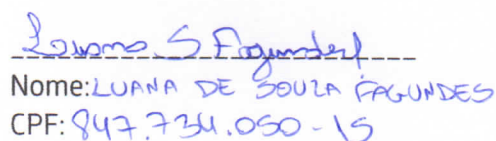 Luana S Fagundes
Nome: LUANA DE SOUZA FAGUNDES
CPF: 847.734.050-15